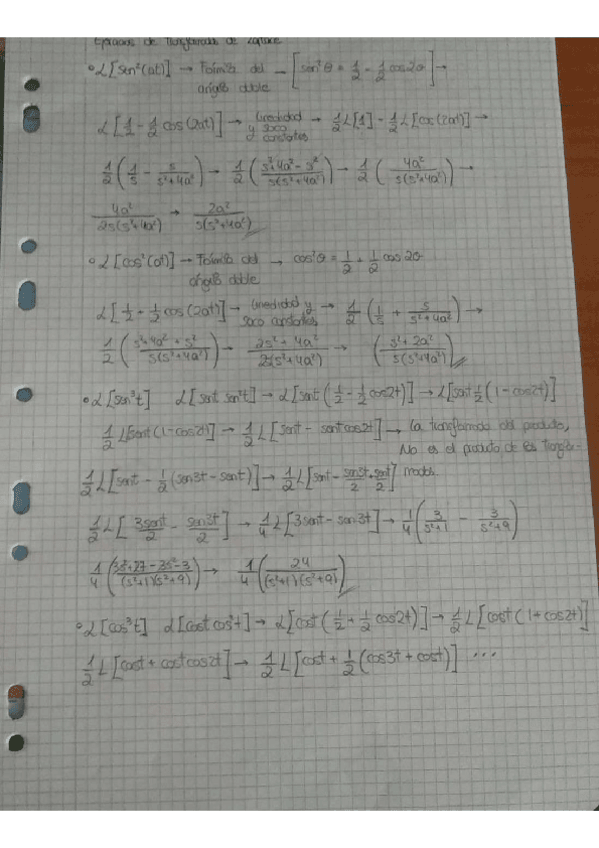 Ejercicios de Transformada de Laplace
• L[sen²(at)] → Fórmula del → [sen²θ = 1/2 - 1/2 cos2θ] →
ángulo doble
L[1/2 - 1/2 cos(2at)] → Linealidad y saco constantes → 1/2 L[1] - 1/2 L[cos(2at)] →
1/2 (1/s - s/(s²+4a²)) → 1/2 ((s²+4a²-s²)/(s(s²+4a²))) → 1/2 (4a²/(s(s²+4a²))) →
4a²/(2s(s²+4a²)) → 2a²/(s(s²+4a²))
• L[cos²(at)] → Fórmula del → cos²θ = 1/2 + 1/2 cos2θ
ángulo doble
L[1/2 + 1/2 cos(2at)] → Linealidad y saco constantes → 1/2 (1/s + s/(s²+4a²)) →
1/2 ((s²+4a²+s²)/(s(s²+4a²))) → (2s²+4a²)/(2s(s²+4a²)) → ((s²+2a²)/(s(s²+4a²)))
• L[sen³t] L[sent sen²t] → L[sent(1/2 - 1/2 cos2t)] → L[sent 1/2(1-cos2t)]
1/2 L[sent(1-cos2t)] → 1/2 L[sent - sent cos2t] → La transformada del producto,
No es el producto de las transfor-
1/2 L[sent - 1/2(sen3t - sent)] → 1/2 L[sent - sen3t/2 + sent/2] madas.
1/2 L[3sent/2 - sen3t/2] → 1/4 L[3sent - sen3t] → 1/4 (3/(s²+1) - 3/(s²+9))
1/4 ((3s²+27-3s²-3)/((s²+1)(s²+9))) → 1/4 (24/((s²+1)(s²+9)))
• L[cos³t] L[cost cos²t] → L[cost(1/2 + 1/2 cos2t)] → 1/2 L[cost(1+cos2t)]
1/2 L[cost + cost cos2t] → 1/2 L[cost + 1/2(cos3t + cost)] ...